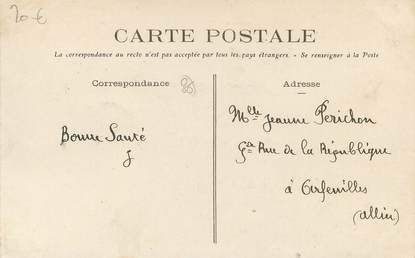 20 €
CARTE POSTALE
La correspondance au recto n'est pas acceptée par tous les pays étrangers. - Se renseigner à la Poste
Correspondance
Adresse
Bonne Santé
J
Mlle Jeanne Périchon
Gde Rue de la République
à Arfeuilles
(Allier)